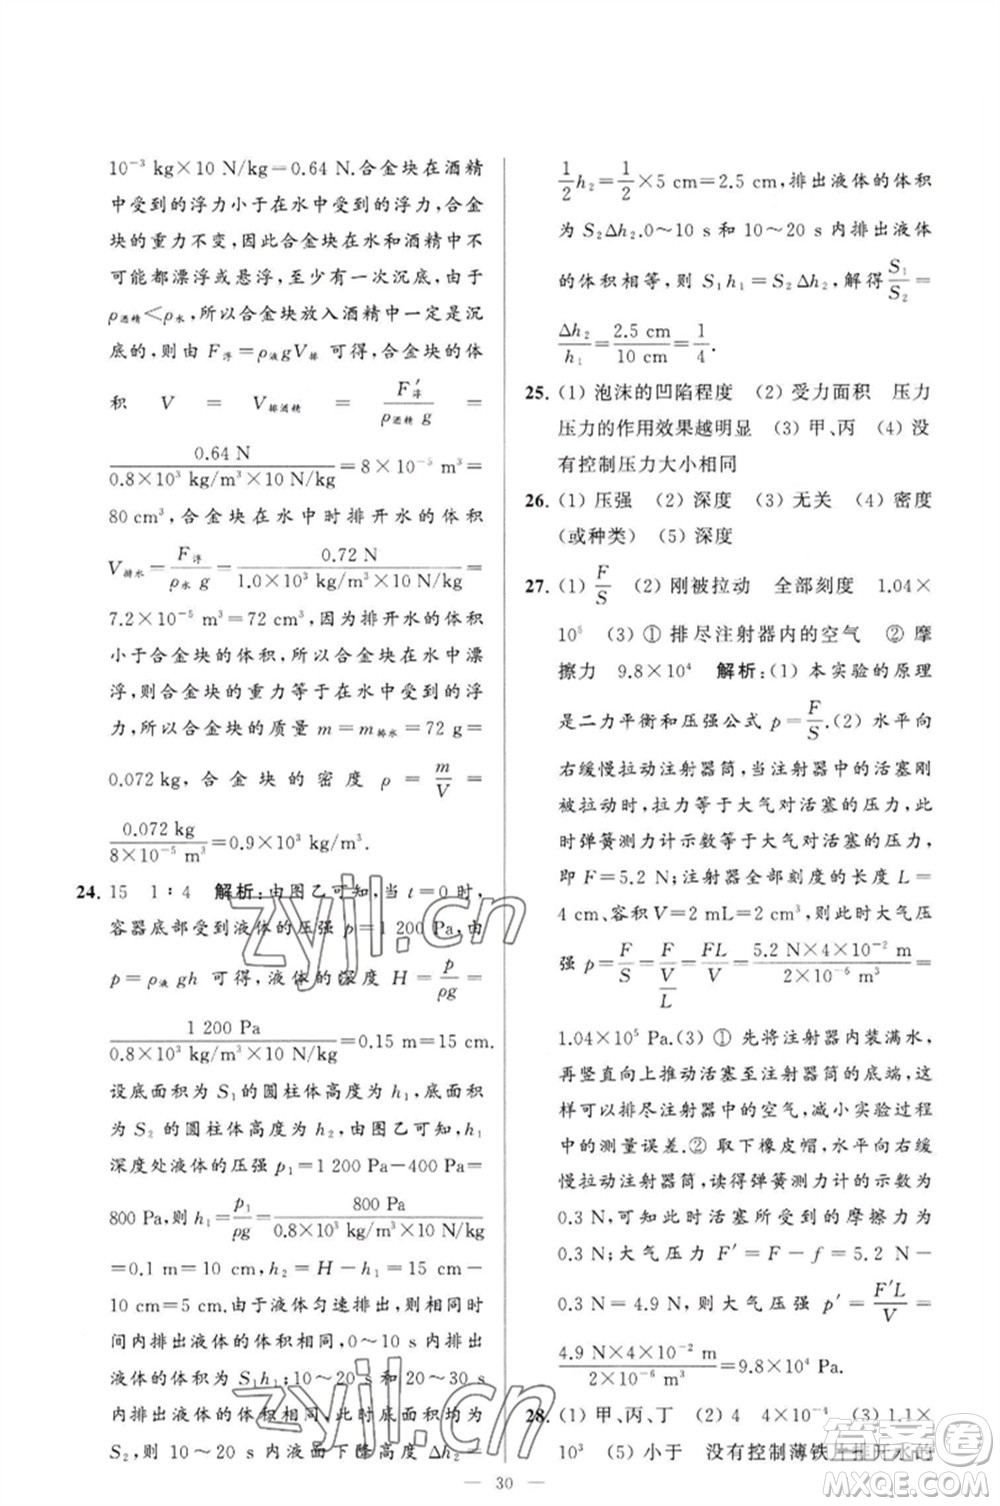 10⁻³ kg×10 N/kg=0.64 N.合金块在酒精
中受到的浮力小于在水中受到的浮力,合金
块的重力不变,因此合金块在水和酒精中不
可能都漂浮或悬浮,至少有一次沉底,由于
ρ酒精<ρ水,所以合金块放入酒精中一定是沉
底的,则由 F浮=ρ液gV排 可得,合金块的体
积 V = V排酒精 = F′浮/(ρ酒精 g) =
0.64 N/(0.8×10³ kg/m³×10 N/kg)=8×10⁻⁵ m³=
80 cm³,合金块在水中时排开水的体积
V排水=F浮/(ρ水 g)=0.72 N/(1.0×10³ kg/m³×10 N/kg)=
7.2×10⁻⁵ m³=72 cm³,因为排开水的体积
小于合金块的体积,所以合金块在水中漂
浮,则合金块的重力等于在水中受到的浮
力,所以合金块的质量 m=m排水=72 g=
0.072 kg,合金块的密度 ρ=m/V=
0.072 kg/(8×10⁻⁵ m³)=0.9×10³ kg/m³.
24. 15 1∶4 解析:由图乙可知,当 t=0 时,
容器底部受到液体的压强 p=1 200 Pa,由
p=ρ液 gh 可得,液体的深度 H=p/(ρg)=
1 200 Pa/(0.8×10³ kg/m³×10 N/kg)=0.15 m=15 cm.
设底面积为 S₁的圆柱体高度为 h₁,底面积
为 S₂ 的圆柱体高度为 h₂,由图乙可知,h₁
深度处液体的压强 p₁=1 200 Pa−400 Pa=
800 Pa,则 h₁=p₁/(ρg)=800 Pa/(0.8×10³ kg/m³×10 N/kg)
=0.1 m=10 cm,h₂=H−h₁=15 cm−
10 cm=5 cm.由于液体匀速排出,则相同时
间内排出液体的体积相同,0~10 s内排出
液体的体积为S₁h₁;10~20 s和20~30 s
内排出液体的体积相同,此时底面积均为
S₂,10~20 s 内液面下降高度 Δh₂=
1/2 h₂=1/2×5 cm=2.5 cm,排出液体的体积
为 S₂Δh₂.0~10 s 和 10~20 s 内排出液体
的体积相等,则 S₁h₁=S₂Δh₂,解得 S₁/S₂=
Δh₂/h₁=2.5 cm/10 cm=1/4.
25. (1) 泡沫的凹陷程度 (2) 受力面积 压力
压力的作用效果越明显 (3) 甲、丙 (4) 没
有控制压力大小相同
26. (1) 压强 (2) 深度 (3) 无关 (4) 密度
(或种类) (5) 深度
27. (1) F/S (2) 刚被拉动 全部刻度 1.04×
10⁵ (3) ① 排尽注射器内的空气 ② 摩
擦力 9.8×10⁴ 解析:(1) 本实验的原理
是二力平衡和压强公式 p=F/S.(2) 水平向
右缓慢拉动注射器筒,当注射器中的活塞刚
被拉动时,拉力等于大气对活塞的压力,此
时弹簧测力计示数等于大气对活塞的压力,
即 F=5.2 N;注射器全部刻度的长度 L=
4 cm,容积V=2 mL=2 cm³,则此时大气压
强 p=F/S=F/(V/L)=FL/V=5.2 N×4×10⁻² m/(2×10⁻⁶ m³)=
1.04×10⁵ Pa.(3) ① 先将注射器内装满水,
再竖直向上推动活塞至注射器的底端,这
样可以排尽注射器中的空气,减小实验过程
中的测量误差.② 取下橡皮帽,水平向右缓
慢拉动注射器筒,读得弹簧测力计的示数为
0.3 N,可知此时活塞所受到的摩擦力为
0.3 N;大气压力 F′=F−f=5.2 N−
0.3 N=4.9 N,则大气压强 p′=F′L/V=
4.9 N×4×10⁻² m/(2×10⁻⁶ m³)=9.8×10⁴ Pa.
28. (1) 甲、丙、丁 (2) 4 4×10⁻⁴ (3) 1.1×
10³ (5) 小于 没有控制薄铁片排开水的
— 30 —
zyjl.cn
zyjl.cn
答案圈
MXQE.COM